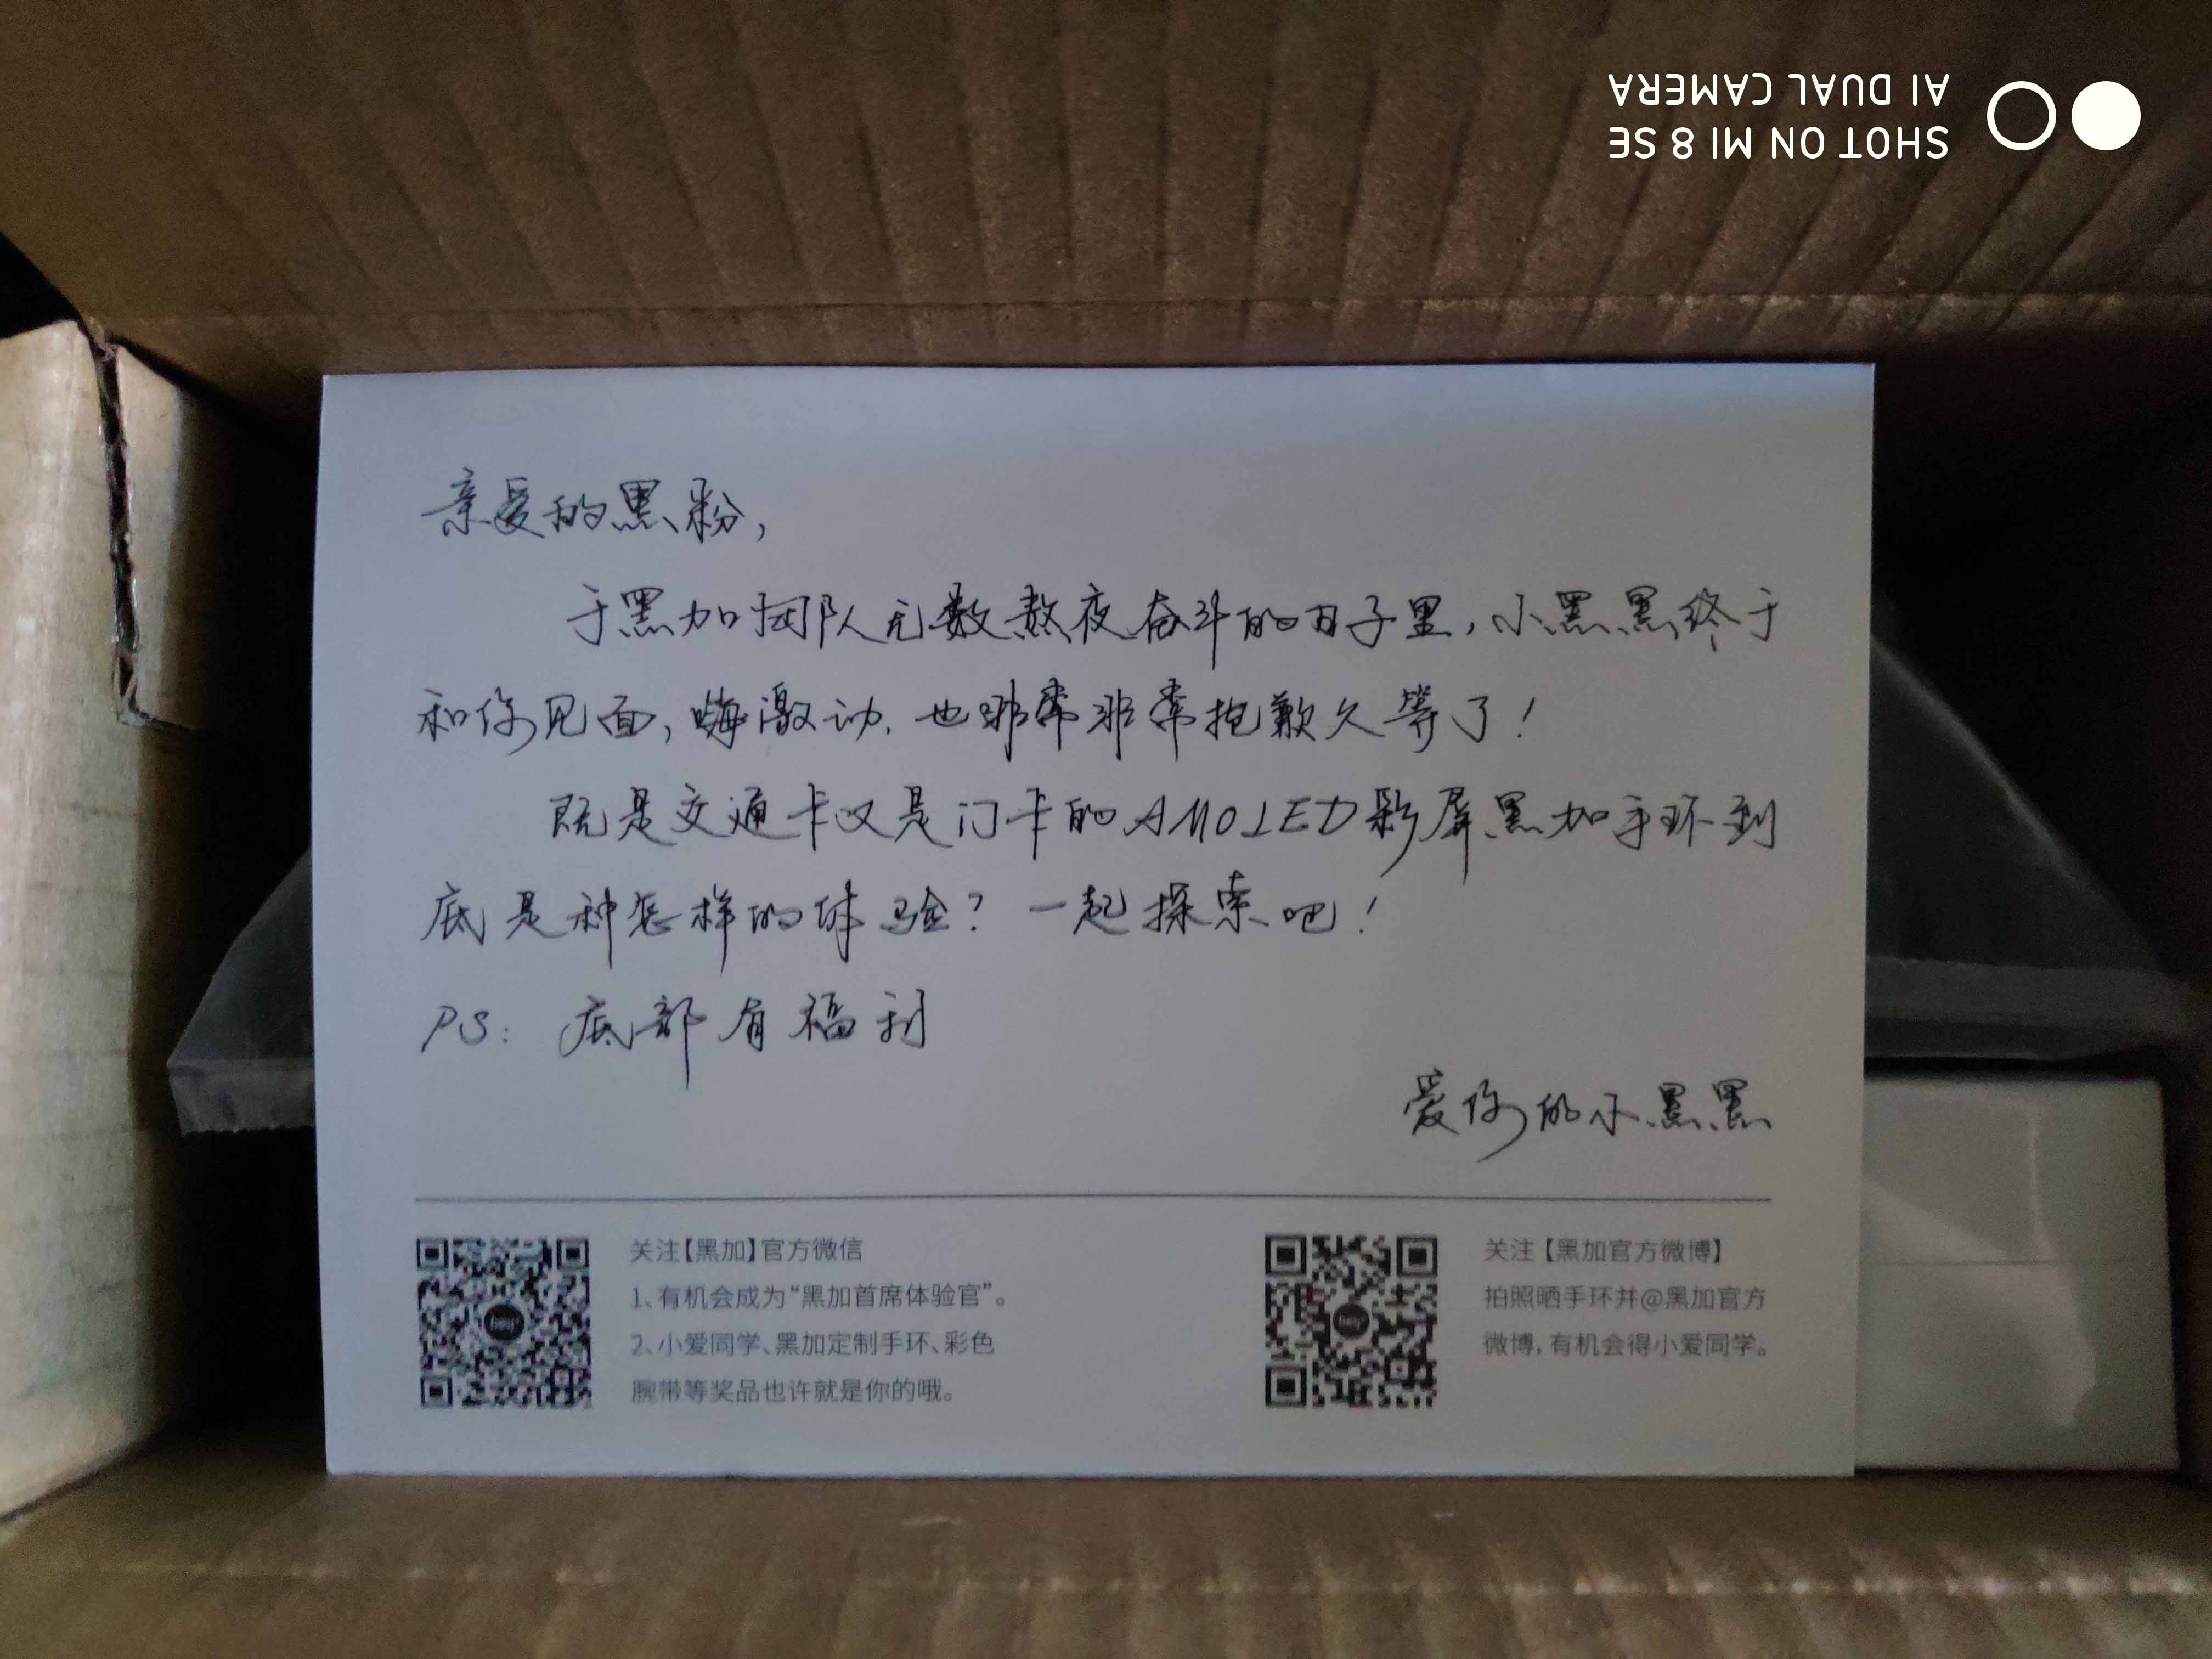 SHOT ON MI 8 SE
AI DUAL CAMERA
亲爱的黑粉,
于黑加团队无数熬夜奋斗的日子里,小黑黑终于
和你见面,嗨激动.也非常非常抱歉久等了!
既是交通卡又是门卡的AMOLED彩屏黑加手环到
底是种怎样的体验?一起探索吧!
PS: 底部有福利
爱你的小黑黑
关注【黑加】官方微信
1、有机会成为“黑加首席体验官”。
2、小爱同学、黑加定制手环、彩色
腕带等奖品也许就是你的哦。
关注【黑加官方微博】
拍照晒手环并@黑加官方
微博,有机会得小爱同学。